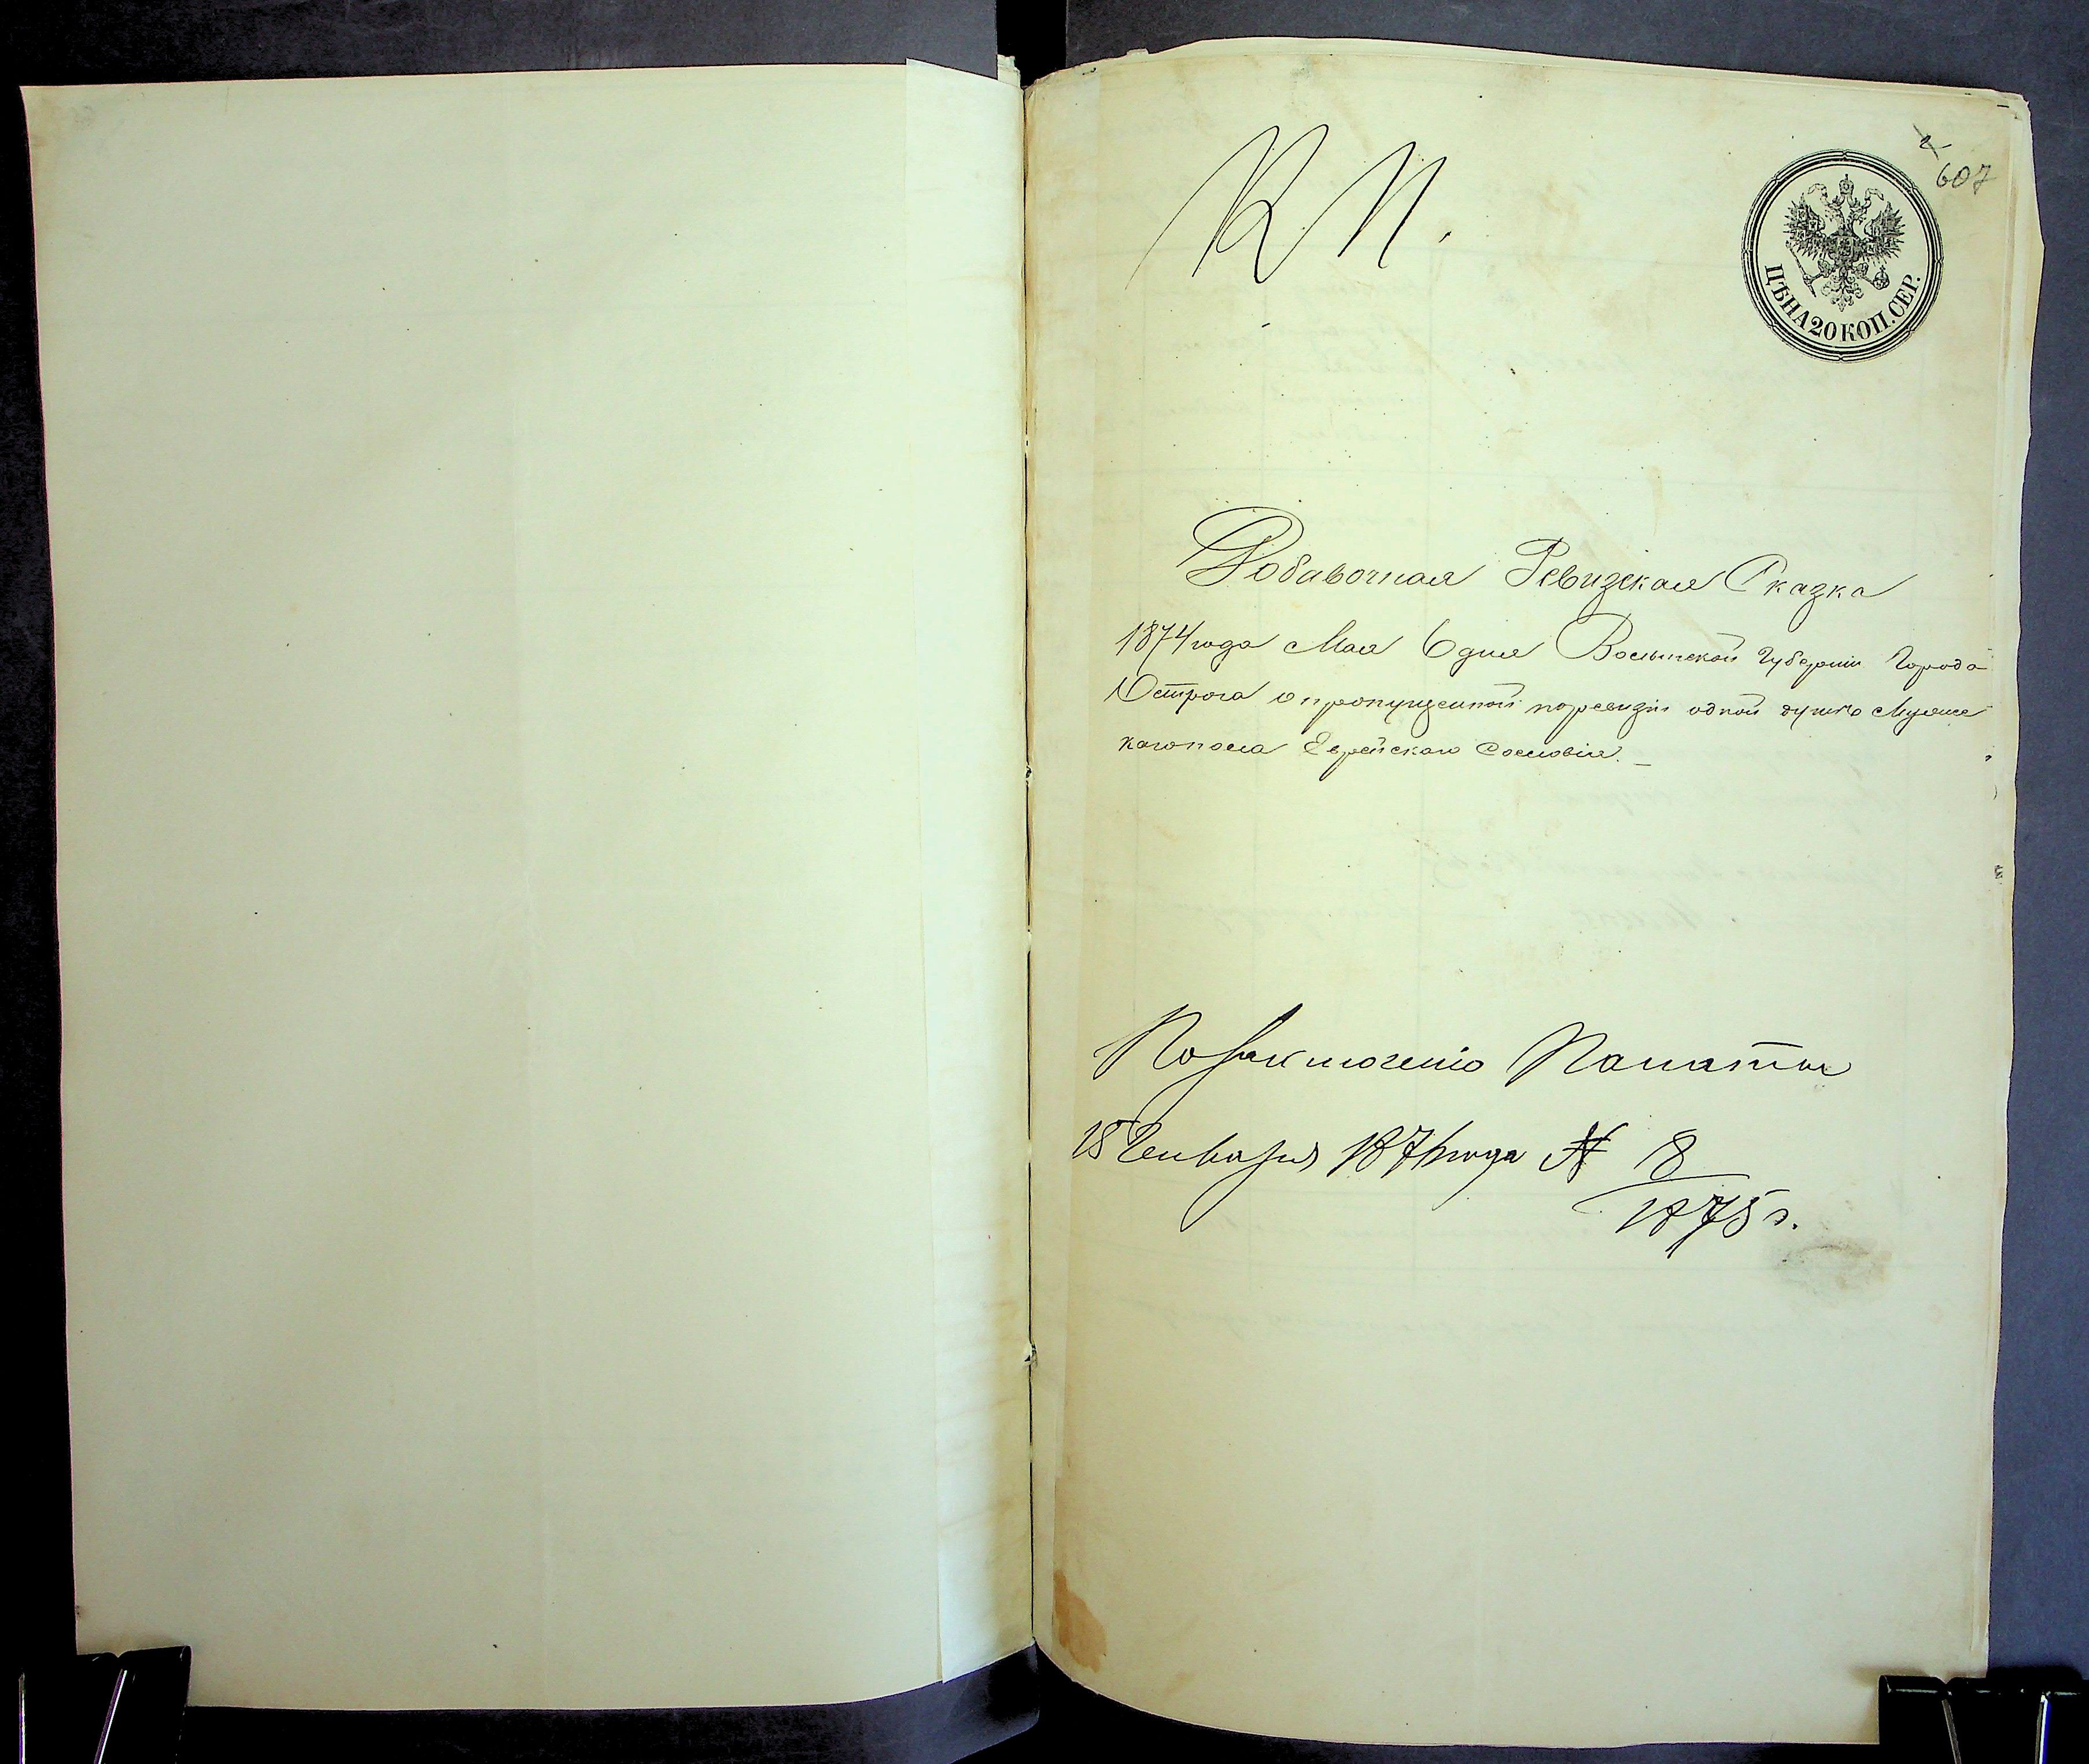 К П.
607
ЦѢНА 20 КОП. СЕР.
Добавочная Ревизская Сказка
1874 года Мая 6 дня Волынской Губернии Города
Острога о пропущенной по ревизіи одной душѣ Мужес
каго пола Еврейскаго Сословія. –
По заключенію Палаты
18 Генваря 187 года № 8
1875 г.